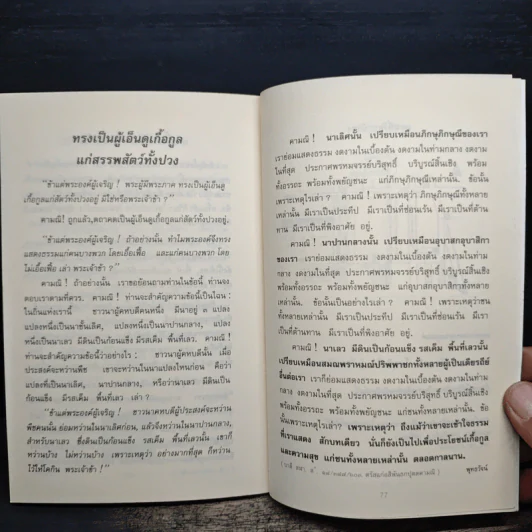 ทรงเป็นผู้เอ็นดูเกื้อกูล
แก่สรรพสัตว์ทั้งปวง
"ข้าแต่พระองค์ผู้เจริญ ! พระผู้มีพระภาค ทรงเป็นผู้เอ็นดู
เกื้อกูลแก่สัตว์ทั้งปวงอยู่ มิใช่หรือพระเจ้าข้า ?"
คามณิ! ถูกแล้ว,ตถาคตเป็นผู้เอ็นดูเกื้อกูลแก่สัตว์ทั้งปวงอยู่.
"ข้าแต่พระองค์ผู้เจริญ ! ถ้าอย่างนั้น ทำไมพระองค์จึงทรง
แสดงธรรมแก่คนบางพวก โดยเอื้อเฟื้อ และแก่คนบางพวก โดย
ไม่เอื้อเฟื้อ เล่า พระเจ้าข้า ?"
คามณิ ! ถ้าอย่างนั้น เราขอย้อนถามท่านในข้อนี้ ท่านจง
ตอบเราตามที่ควร. คามณิ ! ท่านจะสำคัญความข้อนี้เป็นไฉน :
ในถิ่นแห่งเรานี้ ชาวนาผู้คหบดีคนหนึ่ง มีนาอยู่ ๓ แปลง
แปลงหนึ่งเป็นนาชั้นเลิศ, แปลงหนึ่งเป็นนาปานกลาง, แปลง
หนึ่งเป็นนาเลว มีดินเป็นก้อนแข็ง มีรสเค็ม พื้นที่เลว. คามณิ !
ท่านจะสำคัญความข้อนี้ว่าอย่างไร : ชาวนาผู้คหบดีนั้น เมื่อ
ประสงค์จะหว่านพืช เขาจะหว่านในนาแปลงไหนก่อน คือว่า
แปลงที่เป็นนาเลิศ, นาปานกลาง, หรือว่านาเลว มีดินเป็นก้อน
แข็ง มีรสเค็ม พื้นที่เลว เล่า ?
"ข้าแต่พระองค์ผู้เจริญ ! ชาวนาคหบดีผู้ประสงค์จะหว่าน
พืชคนนั้น ย่อมหว่านในนาเลิศก่อน, แล้วจึงหว่านในนาปานกลาง,
สำหรับนาเลว ซึ่งดินเป็นก้อนแข็ง มีรสเค็ม พื้นที่เลวนั้น เขาก็
หว่านบ้าง ไม่หว่านบ้าง เพราะเหตุว่า อย่างมากที่สุด ก็หว่าน
ไว้ให้โคกิน พระเจ้าข้า !"
คามณิ ! นาเลิศนั้น เปรียบเหมือนภิกษุภิกษุณีของเรา
เราย่อมแสดงธรรม งดงามในเบื้องต้น งดงามในท่ามกลาง งดงาม
ในที่สุด ประกาศพรหมจรรย์บริสุทธิ์ บริบูรณ์สิ้นเชิง พร้อม
ทั้งอรรถะ พร้อมทั้งพยัญชนะ แก่ภิกษุภิกษุณีเหล่านั้น. ข้อนั้น
เพราะเหตุไรเล่า ? คามณิ ! เพราะเหตุว่า ภิกษุภิกษุณีทั้งหลาย
เหล่านั้น มีเราเป็นประทีป มีเราเป็นที่ซ่อนเร้น มีเราเป็นที่ต้าน
ทาน มีเราเป็นที่พึ่งอาศัย อยู่.
คามณิ ! นาปานกลางนั้น เปรียบเหมือนอุบาสกอุบาสิกา
ของเรา เราย่อมแสดงธรรม งดงามในเบื้องต้น งดงามในท่าม
กลาง งดงามในที่สุด ประกาศพรหมจรรย์บริสุทธิ์ บริบูรณ์สิ้นเชิง
พร้อมทั้งอรรถะ พร้อมทั้งพยัญชนะ แก่อุบาสกอุบาสิกาทั้งหลาย
เหล่านั้น. ข้อนั้นเป็นอย่างไรเล่า ? คามณิ ! เพราะเหตุว่าชน
ทั้งหลายเหล่านั้น มีเราเป็นประทีป มีเราเป็นที่ซ่อนเร้น มีเรา
เป็นที่ต้านทาน มีเราเป็นที่พึ่งอาศัย อยู่.
คามณิ ! นาเลว มีดินเป็นก้อนแข็ง มีรสเค็ม พื้นที่เลวนั้น
เปรียบเหมือนสมณพราหมณ์ปริพพาชกทั้งหลายผู้เป็นเดียรถีย์
อื่นต่อเรา เราก็ย่อมแสดงธรรม งดงามในเบื้องต้น งดงามในท่าม
กลาง งดงามในที่สุด ประกาศพรหมจรรย์บริสุทธิ์ บริบูรณ์สิ้นเชิง
พร้อมทั้งอรรถะ พร้อมทั้งพยัญชนะ แก่ชนทั้งหลายเหล่านั้น. ข้อ
นั้นเพราะเหตุไรเล่า ? เพราะเหตุว่า ถึงแม้ว่าเขาจะเข้าใจธรรม
ที่เราแสดง สักบทเดียว นั่นก็ยังเป็นไปเพื่อประโยชน์เกื้อกูล
และความสุข แก่ชนทั้งหลายเหล่านั้น ตลอดกาลนาน.
พุทธวัจน์
77